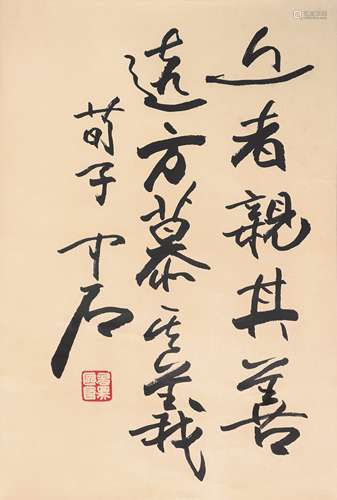 近者親其善
遠方慕其義
荀子 中石